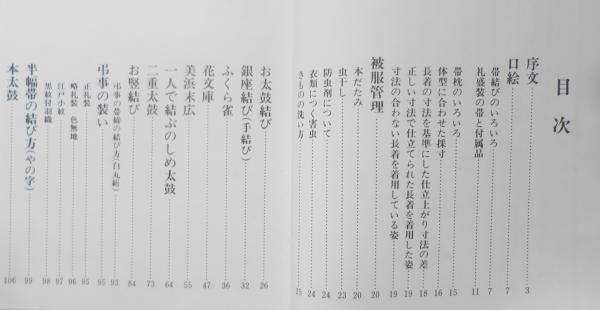 目次
序文 3
口絵 7
帯結びのいろいろ 7
礼盛装の帯と付属品 11
帯枕のいろいろ 15
体型に合わせた採寸 16
長着の寸法を基準にした仕立上がり寸法の差 18
正しい寸法で仕立てられた長着を着用した姿 19
寸法の合わない長着を着用している姿 19
被服管理 20
本だたみ 20
虫干し 23
防虫剤について 24
衣類につく害虫 24
きものの洗い方 25
お太鼓結び 26
銀座結び(手結び) 32
ふくら雀 36
花文庫 47
美浜末広 55
一人で結ぶのしめ太鼓 64
二重太鼓 73
お竪結び 84
弔事の帯締の結び方(白丸絎) 93
弔事の装い 95
正礼装 95
略礼装 色無地 96
江戸小紋 97
黒紋付羽織 98
半幅帯の結び方(やの字) 99
本太鼓 106